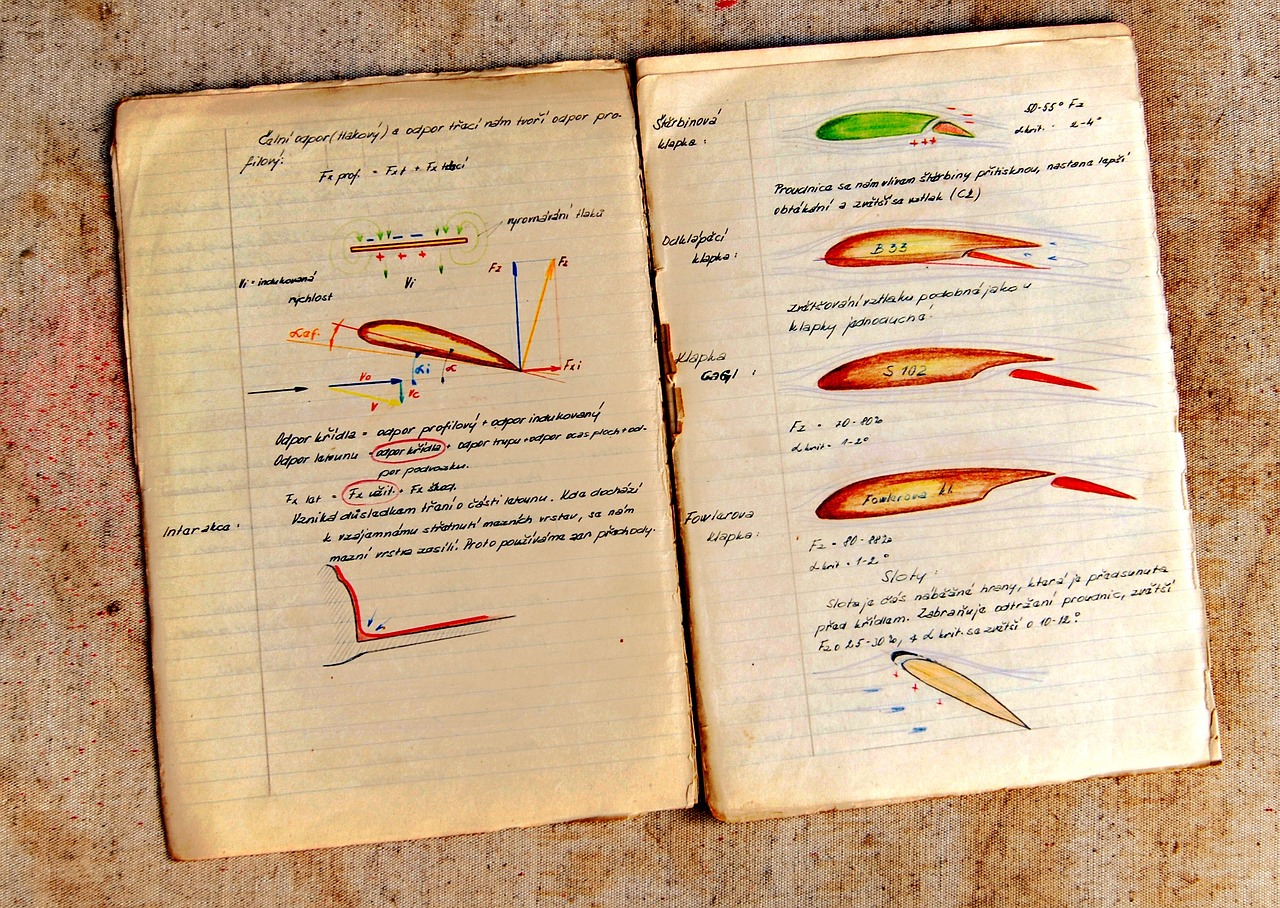 Čelní odpor (tlakový) a odpor třecí nám tvoří odpor pro-
filový:
Fx prof. = Fx t + Fx třecí
vyrovnávání tlaků
Vi
Vi = indukovaná
rychlost
Fz
Fz
αef.
αi
α
Fxi
Vo
Vc
V
Odpor křídla = odpor profilový + odpor indukovaný
Odpor letounu = odpor křídla + odpor trupu + odpor ocas ploch + od-
por podvozku.
Fx let = Fx užit. + Fx škod.
Interakce:
Vzniká důsledkem tření o části letounu. Kde dochází
k vzájemnému střetnutí mezních vrstev, se nám
mezní vrstva zesílí. Proto používáme zen přechody.
Štěrbinová
klapka:
50-55° Fz
αkrit. 2-4°
Proudnice se nám vlivem štěrbiny přitisknou, nastane lepší
obtékání a zvětší se vztlak (Cz)
Odklápěcí
klapka:
B 33
zvětšování vztlaku podobné jako u
klapky jednoduché.
Klapka
GaGI :
S 102
Fz = 70-80%
αkrit = 1-2°
Fowlerova
klapka:
Fowlerova kl.
Fz = 80-88%
αkrit = 1-2°
Sloty:
Slot je část náběžné hrany, která je předsunuta
před křídlem. Zabraňuje odtržení proudnic, zvětší
Fz o 25-30%, a αkrit. se zvětší o 10-12°.